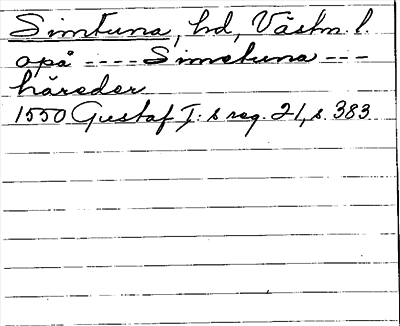 Simtuna, hd, Västm. l.
opå ---- Simetuna ---
häreder
1550 Gustaf I:s reg. 21, s. 383